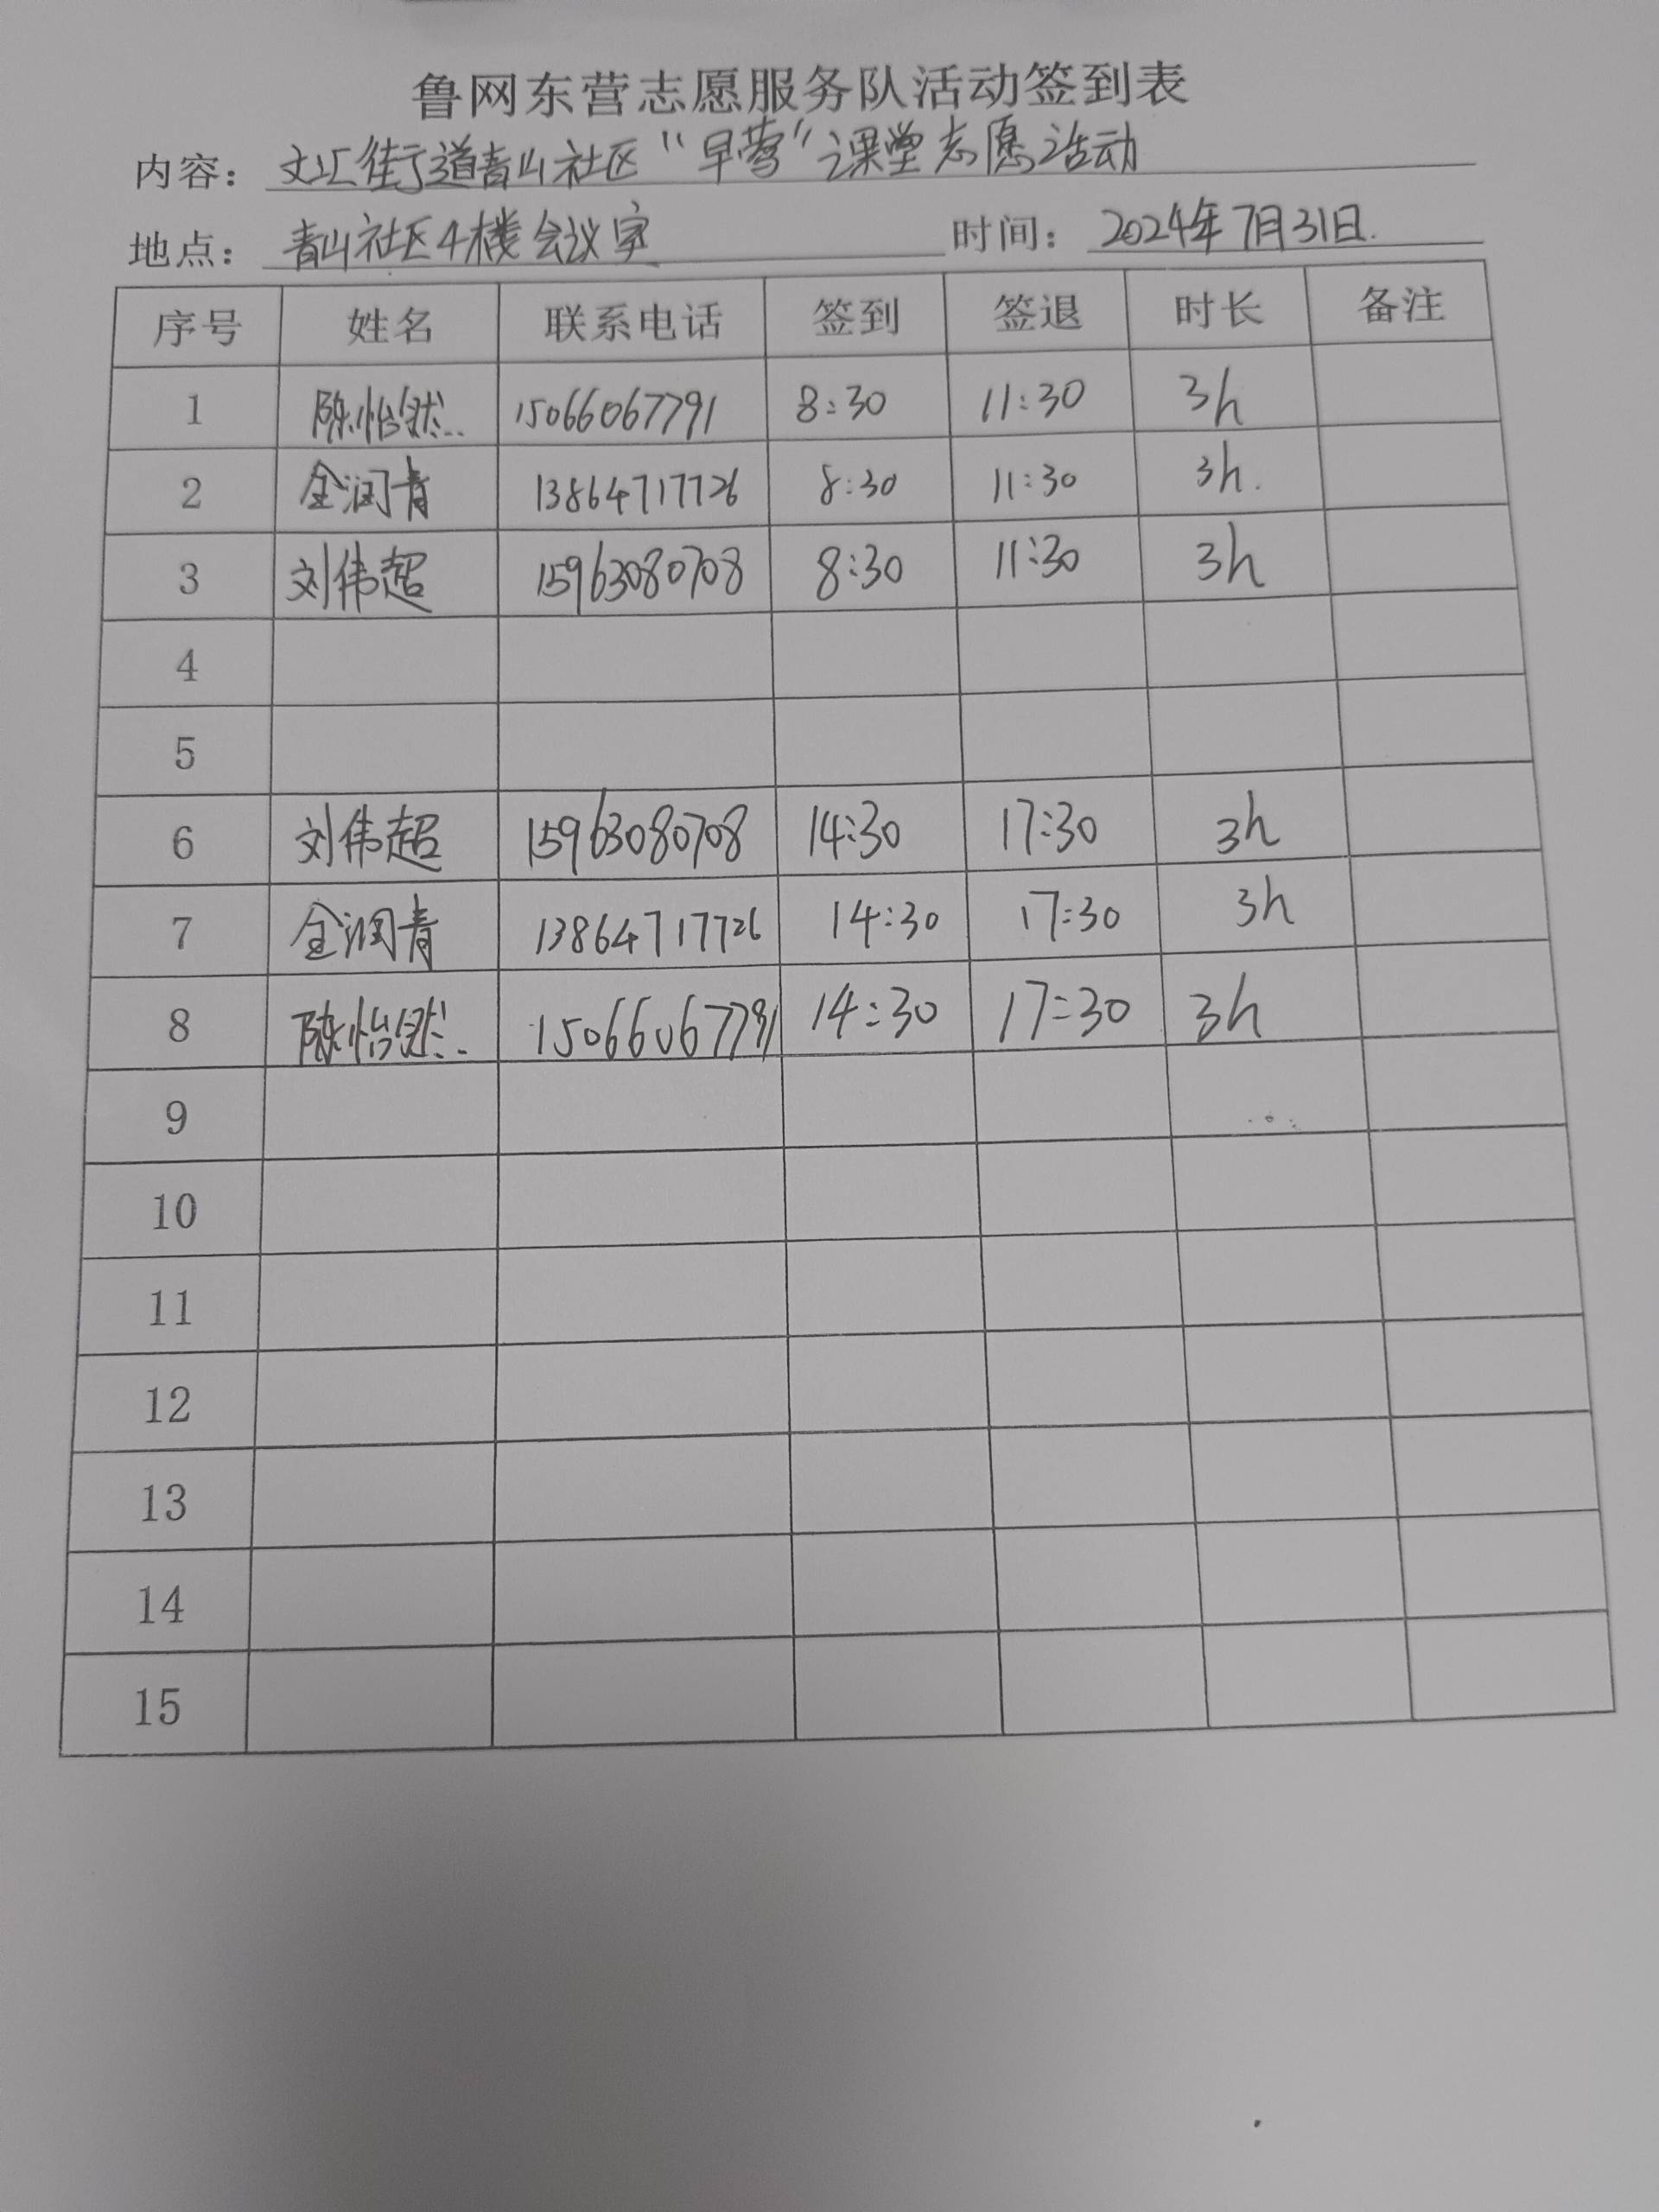 鲁网东营志愿服务队活动签到表
内容：文汇街道青山社区“早营”课堂志愿活动
地点：青山社区4楼会议室 时间：2024年7月31日.
序号 姓名 联系电话 签到 签退 时长 备注
1 陈怡然 15066067791 8:30 11:30 3h
2 金润青 13864717726 8:30 11:30 3h.
3 刘伟超 15963080708 8:30 11:30 3h
4
5
6 刘伟超 15963080708 14:30 17:30 3h
7 金润青 13864717726 14:30 17:30 3h
8 陈怡然 15066067791 14:30 17:30 3h
9
10
11
12
13
14
15